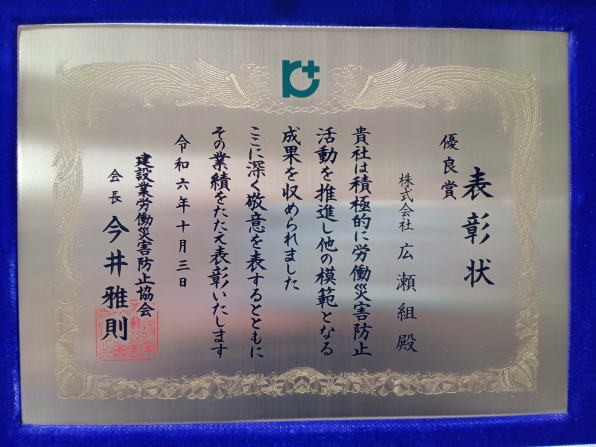 表彰状
優良賞
株式会社 広瀬組殿
貴社は積極的に労働災害防止
活動を推進し他の模範となる
成果を収められました
ここに深く敬意を表するとともに
その業績をたたえ表彰いたします
令和六年十月三日
建設業労働災害防止協会
会長 今井雅則